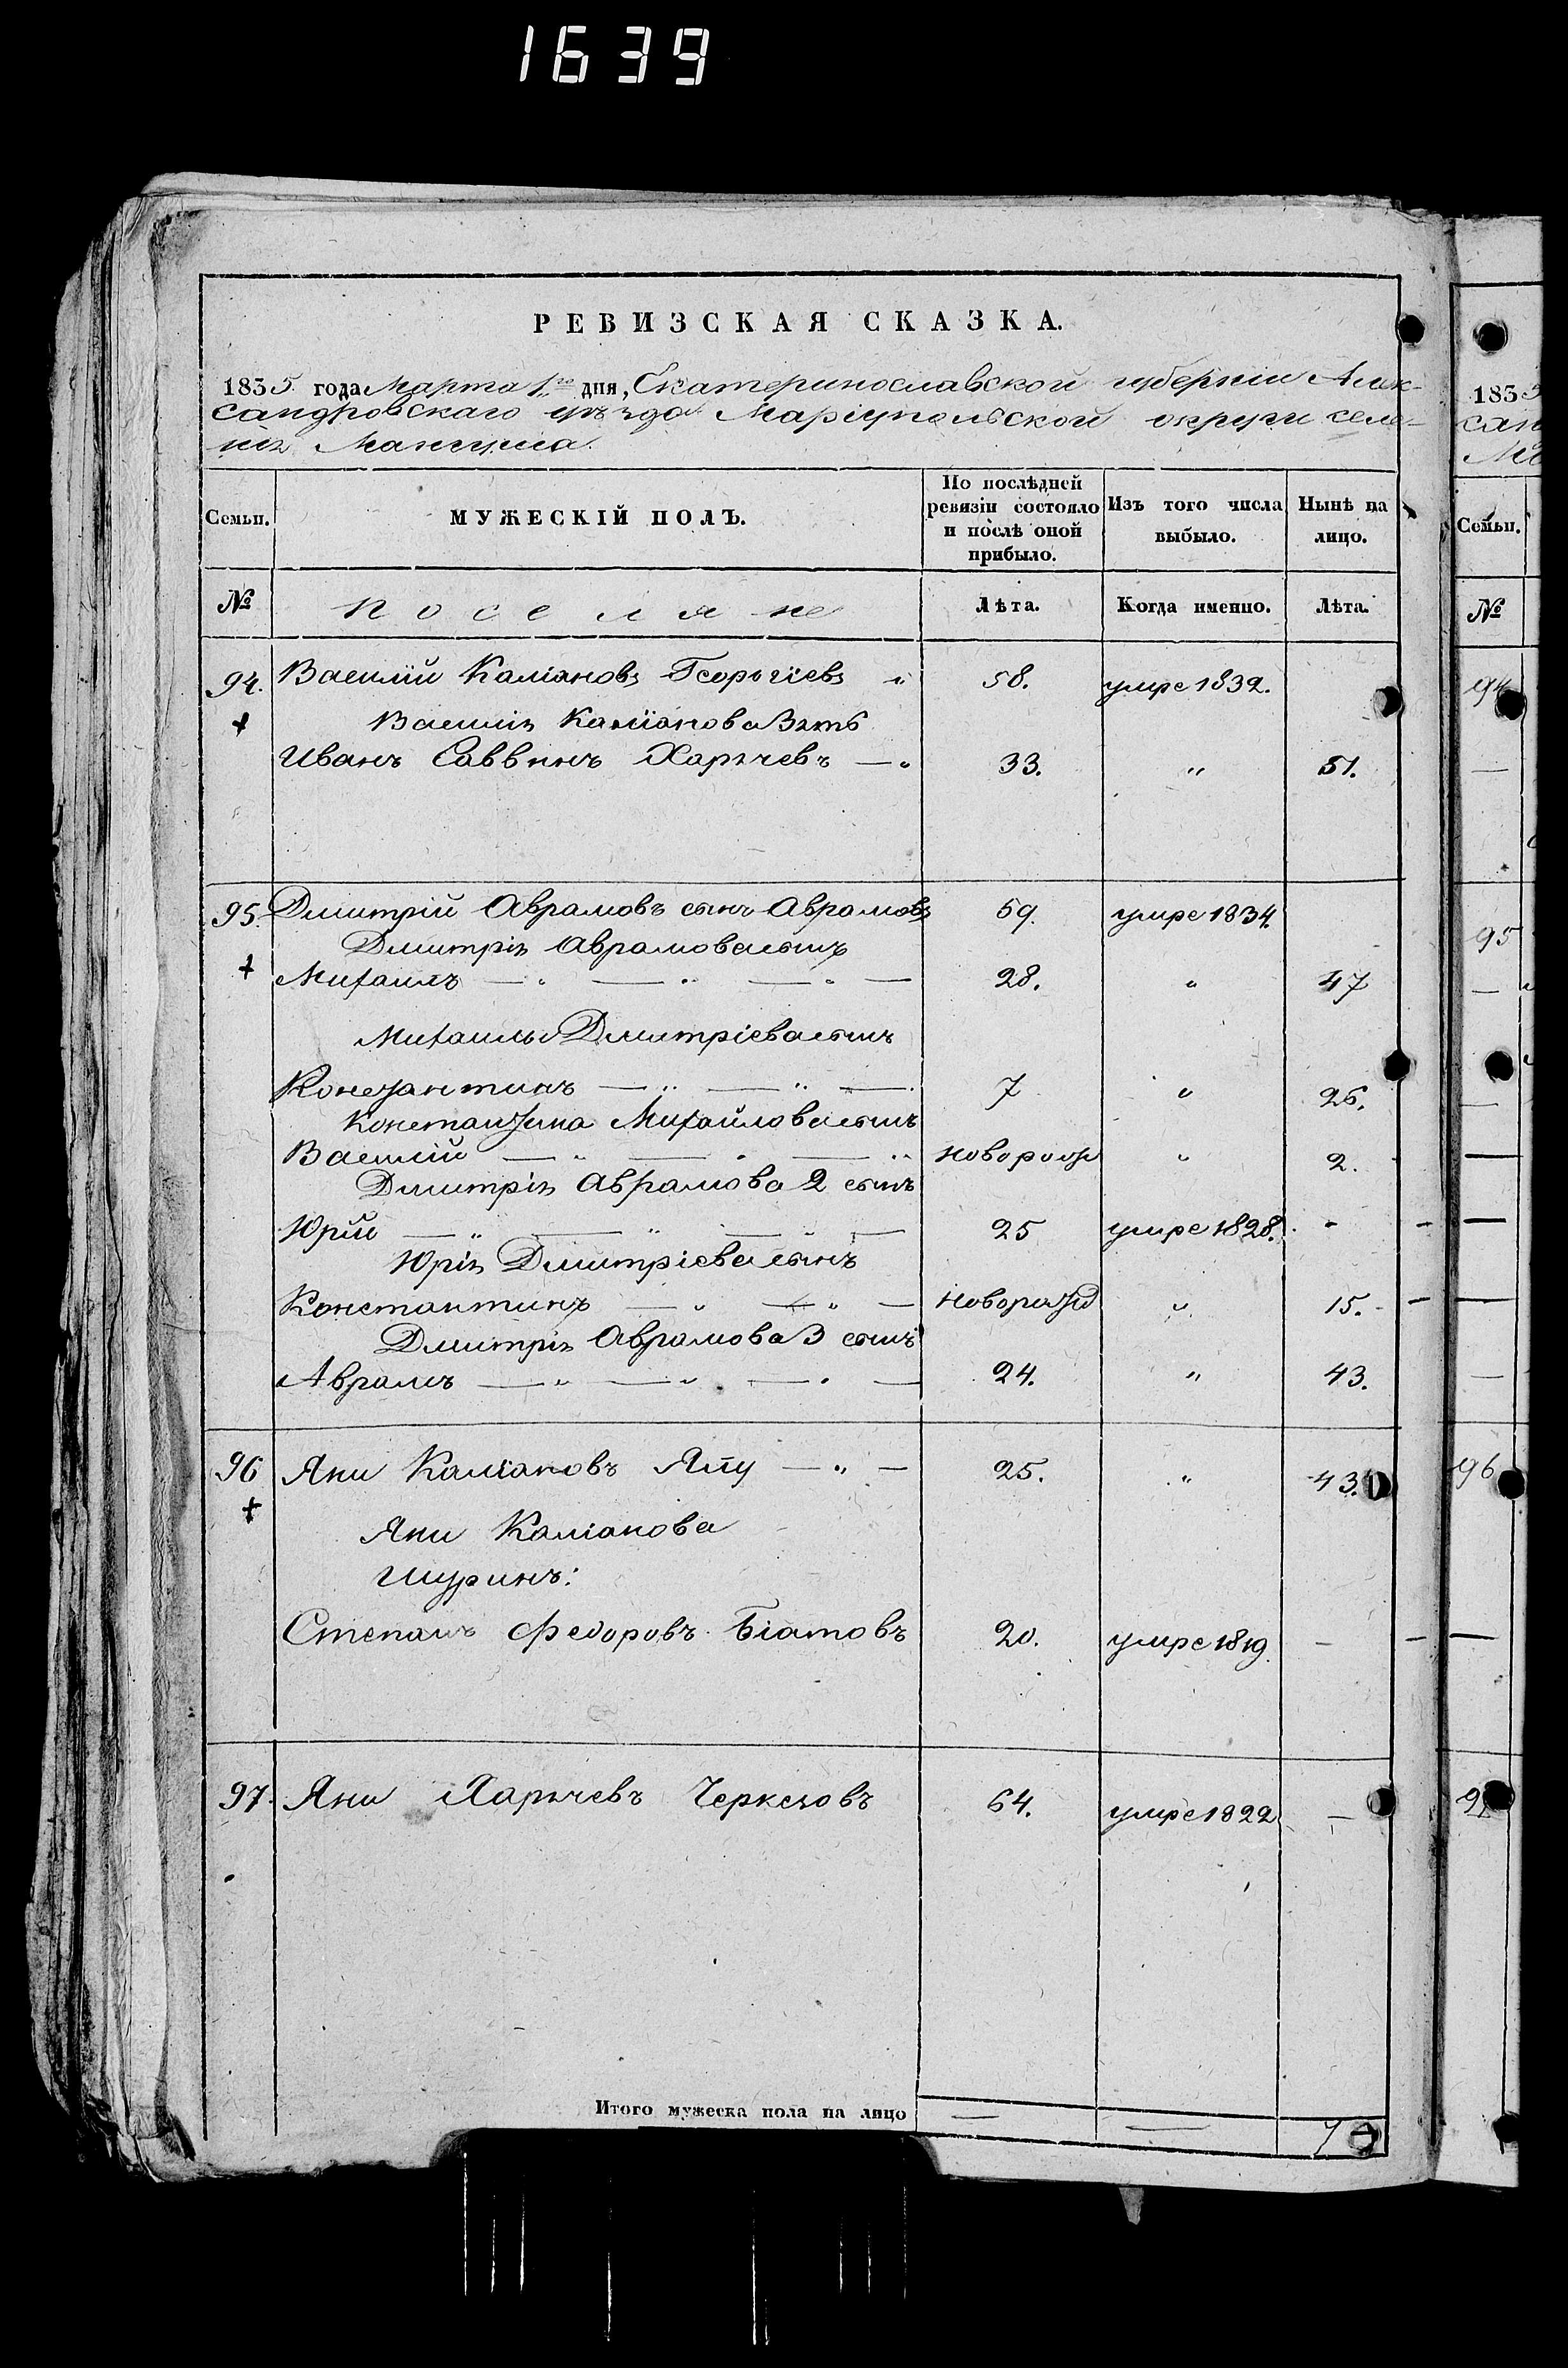 1639
РЕВИЗСКАЯ СКАЗКА.
1835 года Марта 1го дня, Екатеринославской губернiи Алек-
сандровскаго уѣзда Марiупольской округи селе-
нiя Мангуша
Семьи. МУЖЕСКIЙ ПОЛЪ. По послѣдней ревизiи состояло и послѣ оной прибыло. Изъ того числа выбыло. Нынѣ на лицо.
№ поселяне Лѣта. Когда именно. Лѣта.
94. Василiй Калiановъ Георгiевъ 58. умре 1832.
Василiя Калiанова Зять
Иванъ Саввинъ Харгчевъ — „ 33. „ 51.
95. Дмитрiй Аврамовъ сынъ Аврамовъ 59. умре 1834.
Дмитрiя Аврамова сынъ
Михаилъ — „ — „ — „ — 28. „ 47
Михаилы Дмитрiева сынъ
Константинъ — „ — „ — 7 „ 26.
Константина Михайлова сынъ
Василiй — „ — „ — „ новорожд „ 2.
Дмитрiя Аврамова 2 сынъ
Юрiй — „ — „ — „ — 25 умре 1828. -
Юрiя Дмитрiева сынъ
Константинъ — „ — „ — новорожд „ 15.
Дмитрiя Аврамова 3 сынъ
Аврамъ — „ — „ — „ — 24. „ 43.
96 Яни Калiановъ Япу — „ — 25. „ 43.
Яни Калiанова
Шуринъ:
Степанъ Федоровъ Бiатовъ 20. умре 1819. —
97. Яни Харгчевъ Черкезовъ 64. умре 1822 —
Итого мужеска пола на лицо — — 7
1835
сан
Семьи.
№
94
95
96